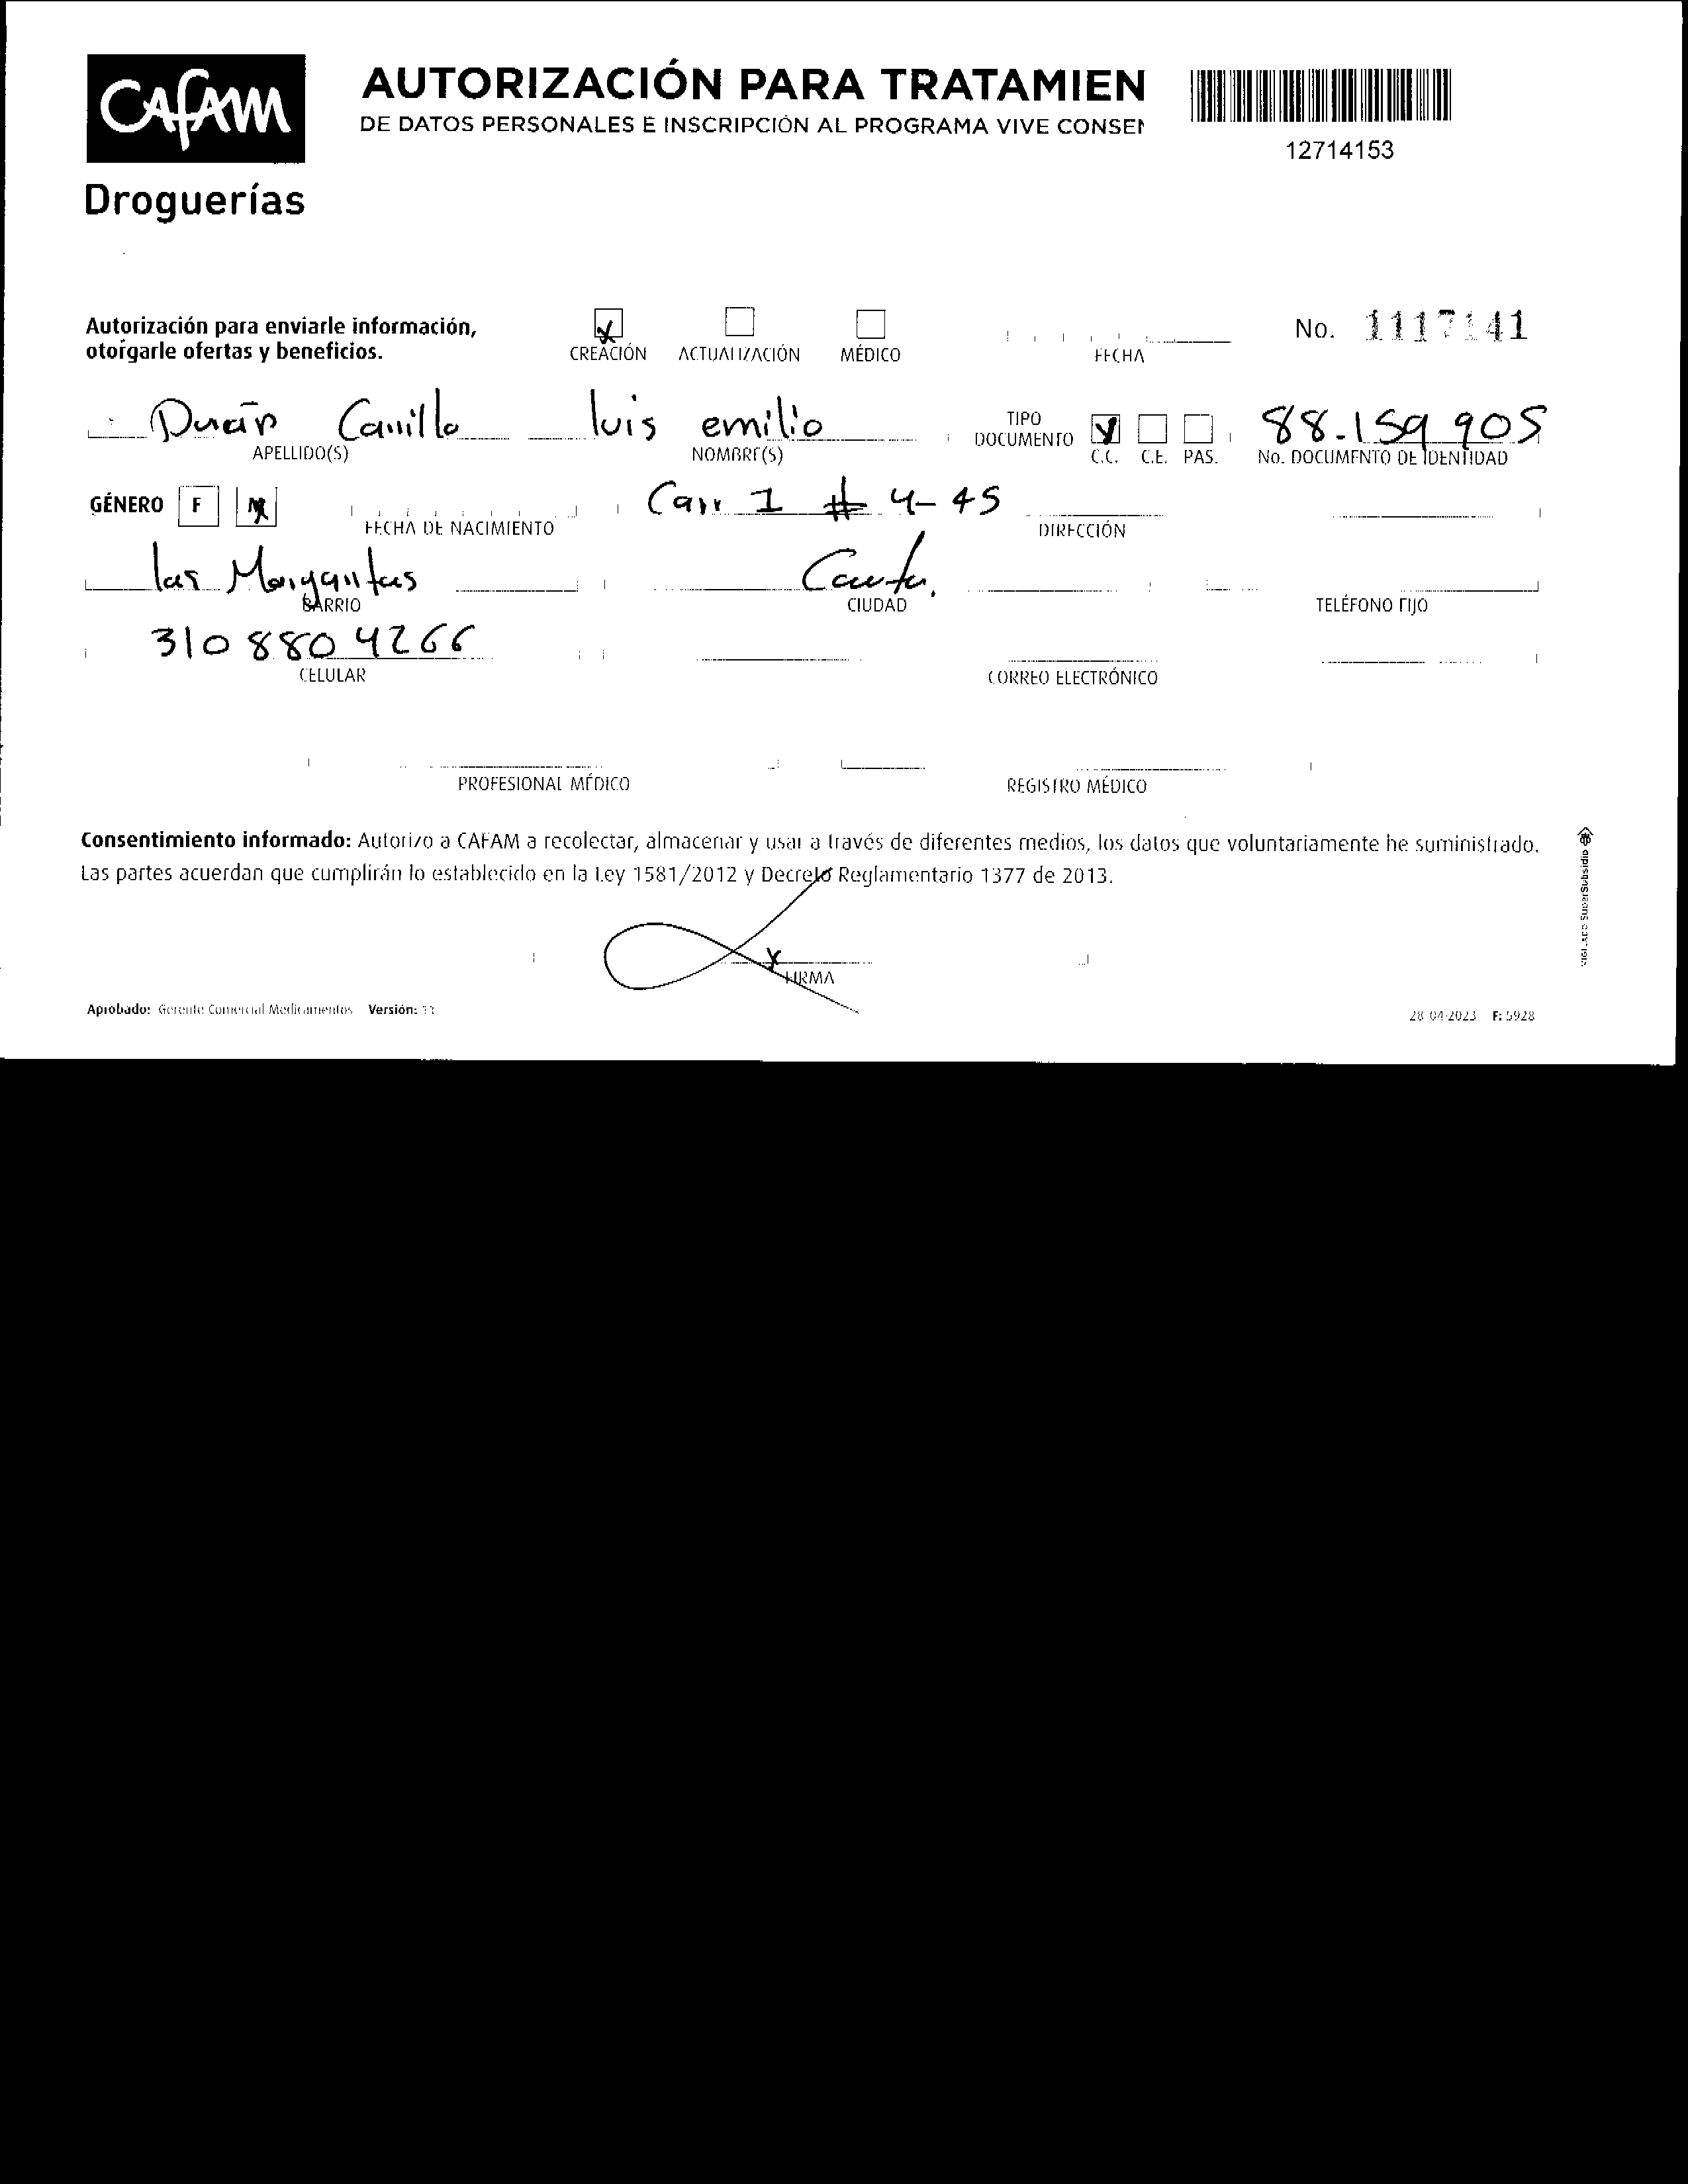 CAFAM
Droguerías
AUTORIZACIÓN PARA TRATAMIEN
DE DATOS PERSONALES E INSCRIPCIÓN AL PROGRAMA VIVE CONSEN
12714153
Autorización para enviarle información,
otorgarle ofertas y beneficios.
CREACIÓN ACTUALIZACIÓN MÉDICO FECHA
No. 1117141
Durán Carrillo luis emilio 88.159 905
APELLIDO(S) NOMBRE(S) TIPO DOCUMENTO C.C. C.E. PAS. No. DOCUMENTO DE IDENTIDAD
GÉNERO F M Carr 1 # 4-45
FECHA DE NACIMIENTO DIRECCIÓN
las Margaritas
BARRIO CIUDAD TELÉFONO FIJO
310 880 4266
CELULAR CORREO ELECTRÓNICO
PROFESIONAL MÉDICO REGISTRO MÉDICO
Consentimiento informado: Autorizo a CAFAM a recolectar, almacenar y usar a través de diferentes medios, los datos que voluntariamente he suministrado.
Las partes acuerdan que cumplirán lo establecido en la Ley 1581/2012 y Decreto Reglamentario 1377 de 2013.
x
FIRMA
Aprobado: Gerente Comercial Medicamentos Versión:
28-04-2023 F: 5928
VIGILADO SuperSubsidio